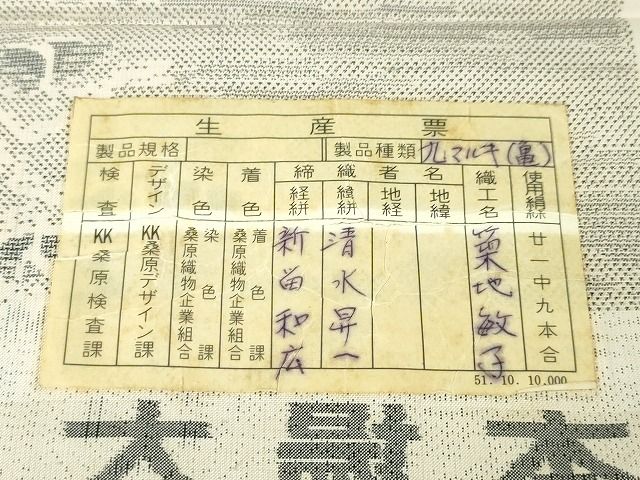 生産票
製品規格
製品種類 九マルキ(亀)
使用絹糸 廿一中九本合
織工名 築地敏子
締織者名
地緯
地経
緯絣 清水昇一
経絣 新留和広
着色 着色課 桑原織物企業組合
染色 染色課 桑原織物企業組合
デザイン KK桑原デザイン課
検査 KK桑原検査課
51. 10. 10.000